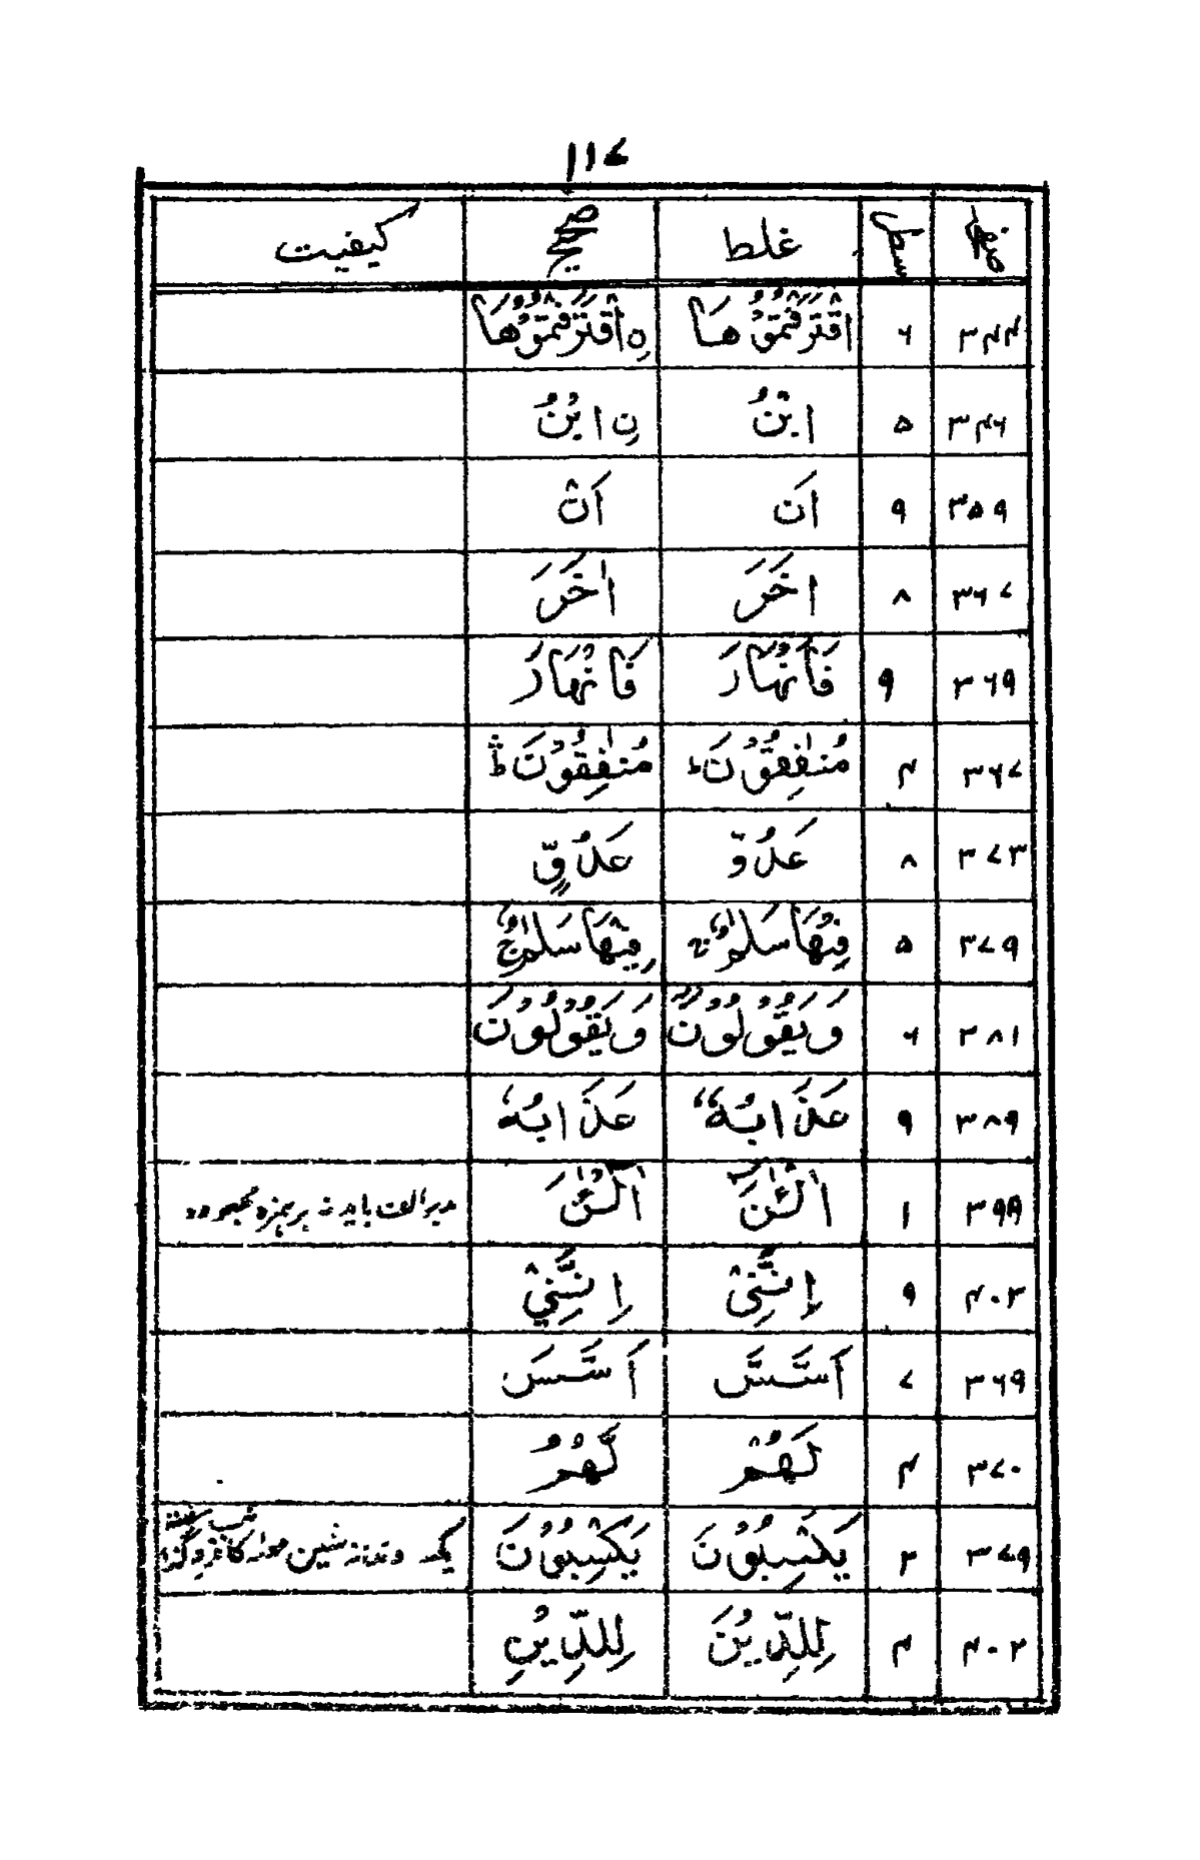 ۱۱۷
صفحہ سطر غلط صحیح کیفیت
۳۴۴ ۶ اقْتَرَفْتُمُوْ هَا ہِ اقْتَرَفْتُمُوْهَا
۳۴۶ ۵ ابْنُ نِ ابْنُ
۳۵۹ ۹ اَن اَنْ
۳۶۷ ۸ اخَرَ اٰخَرَ
۳۶۹ ۹ فَاَنْهَارَ فَانْهَارَ
۳۶۷ ۴ مُنٰفِقُوْنَ ط مُنٰفِقُوْنَ ط
۳۷۳ ۸ عَدُوّ عَدُوٍّ
۳۷۹ ۵ فِيْهَا سَلٰمٌ ج فِيْهَا سَلٰمٌ ج
۳۸۱ ۶ وَيَقُوْلُوْنَ وَيَقُوْلُوْنَ
۳۸۹ ۹ عَذَابُهٗ عَذَابُهٗ
۳۹۸ ۱ اٰلْـٰٔنَ آٰلْـٰٔنَ مد بر الف باید نہ بر ہمزہ
۴۰۲ ۹ اِنَّنِیْ اِنَّنِیْ
۳۶۹ ۷ اَسَّسَّ اَسَّسَ
۳۷۰ ۴ لَهُمْ لَّهُمُ
۳۷۹ ۲ يَكْشِبُوْنَ يَكْسِبُوْنَ
۴۰۲ ۴ لِلدِّيْنَ لِلدِّيْنِ